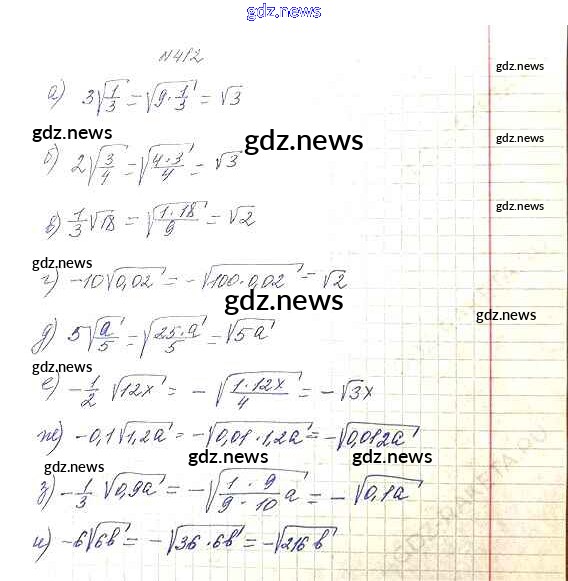 gdz.news
N 412
gdz.news
а) 3√(1/3) = √(9·1/3) = √3
gdz.news
gdz.news
gdz.news
б) 2√(3/4) = √(4·3/4) = √3
gdz.news
в) 1/3 √18 = √(1·18/9) = √2
gdz.news
г) -10√0,02 = -√(100·0,02) = √2
gdz.news
gdz.news
д) 5√(a/5) = √(25·a/5) = √5a
gdz.news
е) -1/2 √12x = -√(1·12x/4) = -√3x
ж) -0,1√1,2a = -√(0,01·1,2a) = -√0,012a
gdz.news
gdz.news
з) -1/3 √0,9a = -√(1·9/9·10 a) = -√0,1a
и) -6√6b = -√(36·6b) = -√216b
gdz.news
gdz.news